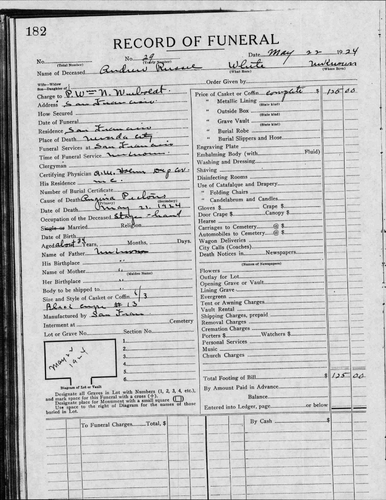 182
RECORD OF FUNERAL
No. 29 Date May 22 1924
(Total Number) (Yearly Number)
Name of Deceased Andrew White Unknown
(What Race) (Where Born)
Charge to P. W. N.
Address San Francisco
How Secured
Date of Funeral
Residence San Francisco
Place of Death Nevada City
Funeral Services at San Francisco
Time of Funeral Service Unknown
Clergyman
Certifying Physician
His Residence n.c.
Number of Burial Certificate
Cause of Death Angina Pectoris
Date of Death May 21. 1924
Occupation of the Deceased Stage-hand
Single or Married Religion
Date of Birth
Aged about 38 Years, Months, Days
Name of Father Unknown
His Birthplace "
Name of Mother "
(Maiden Name)
Her Birthplace "
Body to be shipped to
Size and Style of Casket or Coffin 6/3
Black # 13
Manufactured by San Fran
Interment at Cemetery
Lot or Grave No. Section No.
May 22
1924
1
2
3
4
5
Diagram of Lot or Vault
Designate all Graves in Lot with Numbers (1, 2, 3, 4, etc.),
and mark space for this Funeral with a cross (+).
Designate place for Monument with a small square (□)
Use space to right of Diagram for the names of those
buried in Lot.
Order Given by
Price of Casket or Coffin complete $ 125 00
" Metallic Lining
" Outside Box
" Grave Vault
" Burial Robe
" Burial Slippers and Hose
Engraving Plate
Embalming Body (with Fluid)
Washing and Dressing
Shaving
Disinfecting Rooms
Use of Catafalque and Drapery
" Folding Chairs
" Candelabrum and Candles
Gloves $ Crape $
Door Crape $ Canopy $
Hearse
Carriages to Cemetery @ $
Automobiles to Cemetery @ $
Wagon Deliveries
City Calls (Coaches)
Death Notices in Newspapers
(Names of Newspapers)
Flowers
Outlay for Lot
Opening Grave or Vault
Lining Grave
Evergreen
Tent or Awning Charges
Vault Rental
Shipping Charges, prepaid
Removal Charges
Cremation Charges
Porters $ Watchers $
Personal Services
Music
Church Charges
Total Footing of Bill $ 125 00
By Amount Paid in Advance
Balance
Entered into Ledger, page or below
To Funeral Charges Total, $
By Cash $